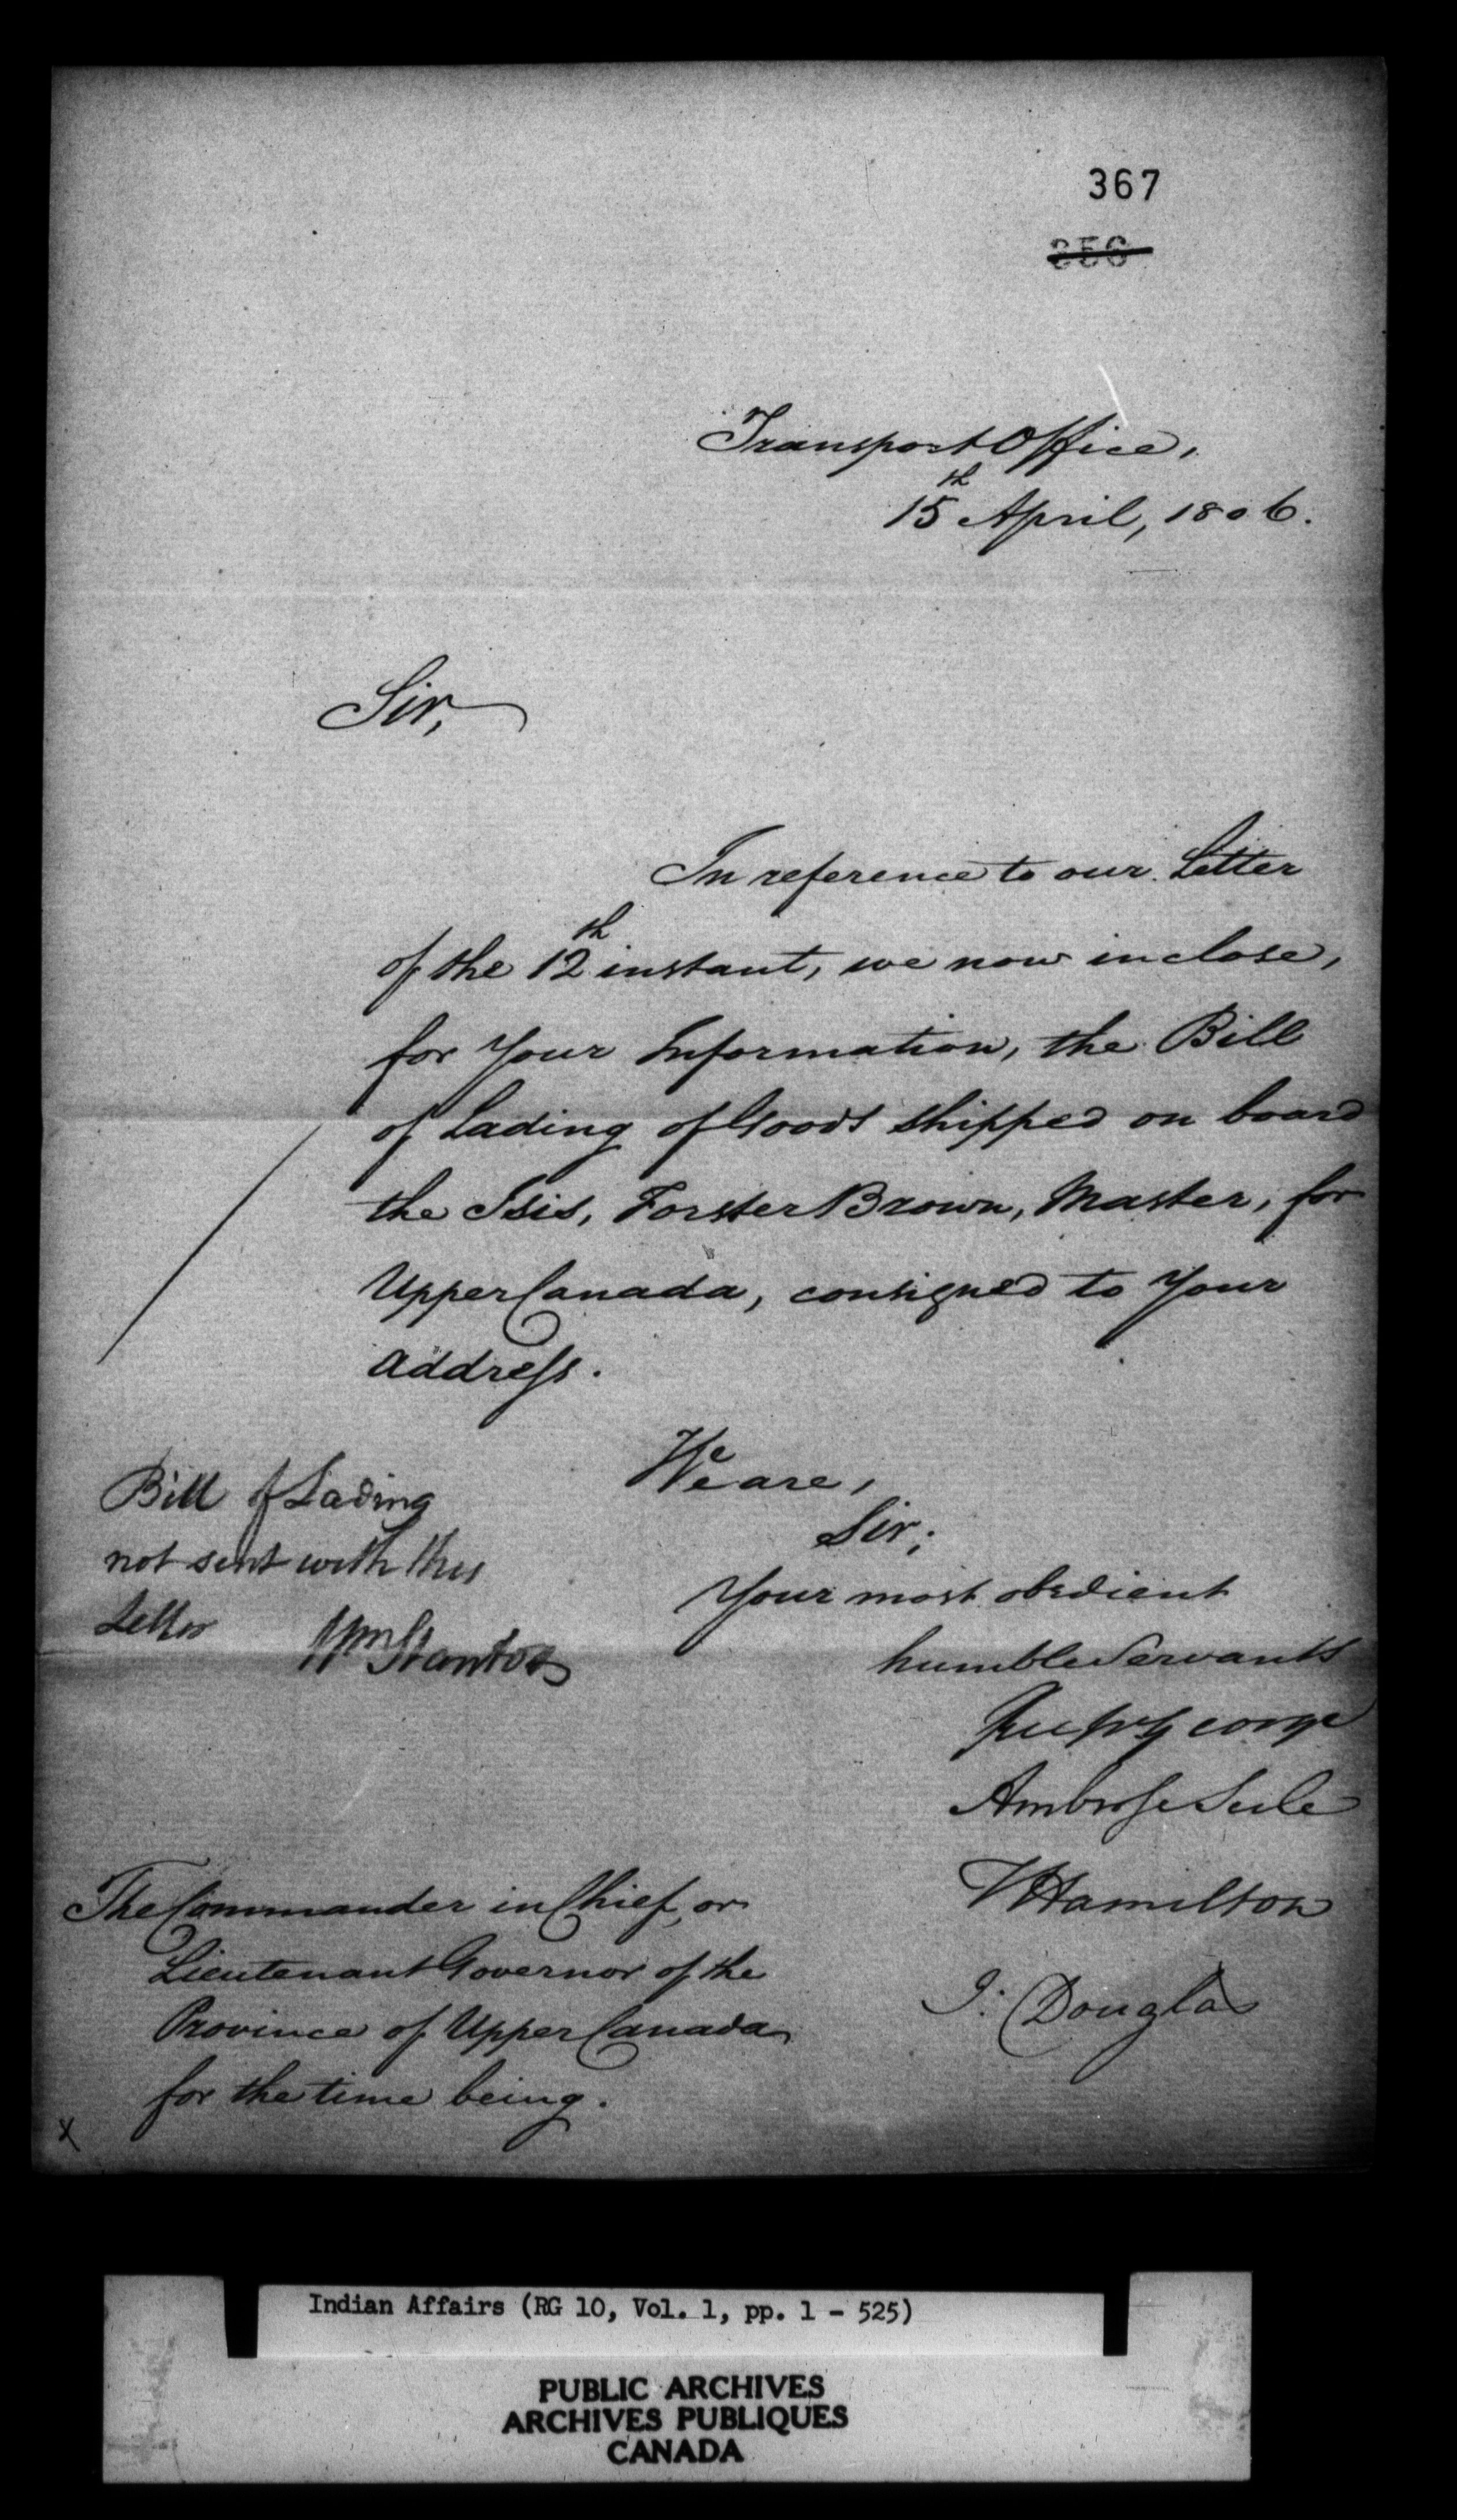 367
356
Transport Office,
15th April, 1806.
Sir,
In reference to our Letter
of the 12th instant, we now inclose,
for Your Information, the Bill
of Lading of Goods shipped on board
the Isis, Forster Brown, Master, for
Upper Canada, consigned to Your
address.
We are,
Sir;
Your most obedient
humble Servants
Rup George
Ambrose Serle
W Hamilton
J: Douglas
Bill of Lading
not sent with this
Letter Wm Stanton
The Commander in Chief, or
Lieutenant Governor of the
Province of Upper Canada
for the time being.
x
Indian Affairs (RG 10, Vol. 1, pp. 1 - 525)
PUBLIC ARCHIVES
ARCHIVES PUBLIQUES
CANADA